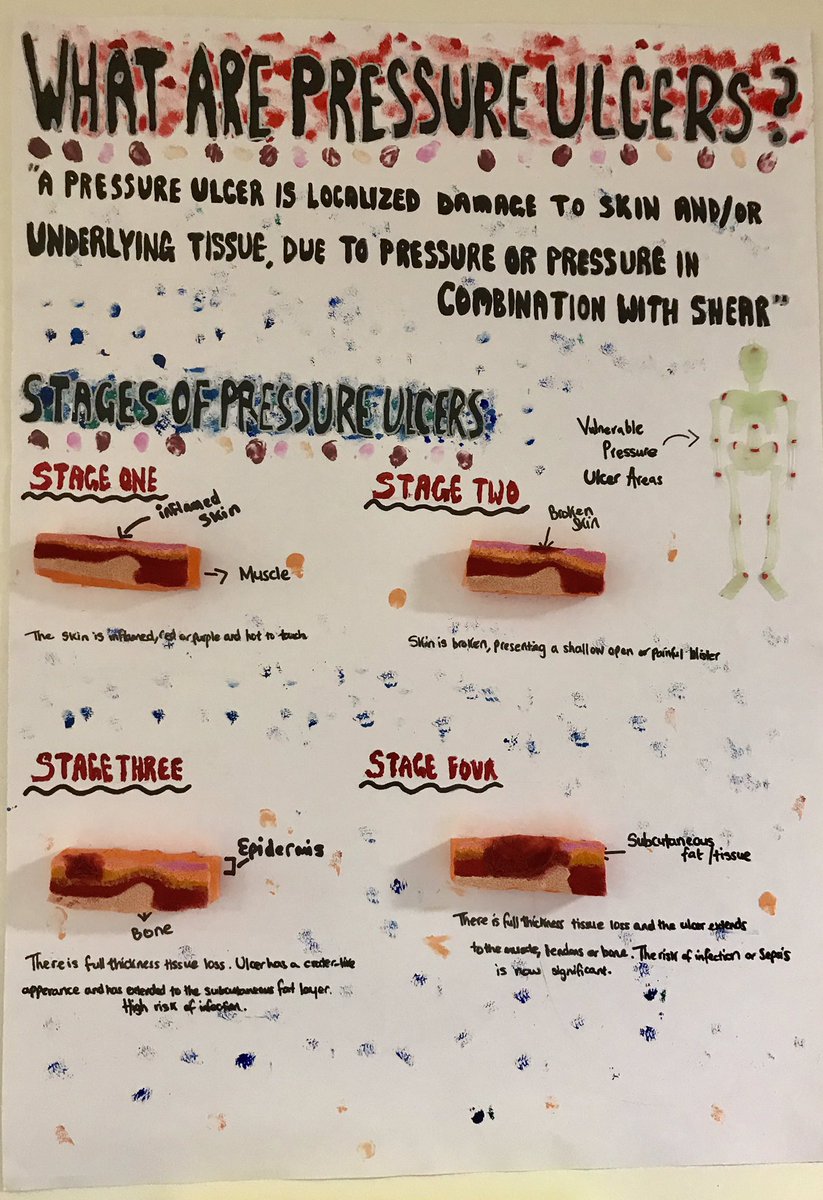 WHAT ARE PRESSURE ULCERS?
"A PRESSURE ULCER IS LOCALIZED DAMAGE TO SKIN AND/OR
UNDERLYING TISSUE, DUE TO PRESSURE OR PRESSURE IN
COMBINATION WITH SHEAR"
STAGES OF PRESSURE ULCERS
Vulnerable
Pressure
Ulcer Areas
STAGE ONE
inflamed
skin
Muscle
The skin is inflamed, red or purple and hot to touch
STAGE TWO
Broken
Skin
Skin is broken, presenting a shallow open or painful blister
STAGE THREE
Epidermis
Bone
There is full thickness tissue loss. Ulcer has a crater-like
apperance and has extended to the subcutaneous fat layer.
High risk of infection.
STAGE FOUR
Subcutaneous
fat/tissue
There is full thickness tissue loss and the ulcer extends
to the muscle, tendons or bone. The risk of infection or Sepsis
is now significant.